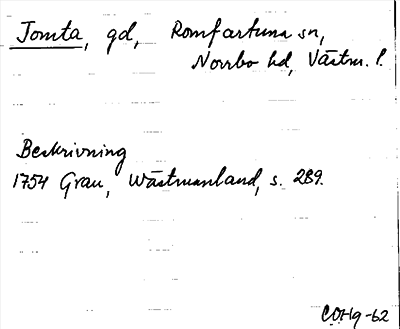 Tomta, gd, Romfartuna sn,
Norrbo hd, Västm. l.
Beskrivning
1754 Grau, Wästmanland, s. 289.
COHg-62